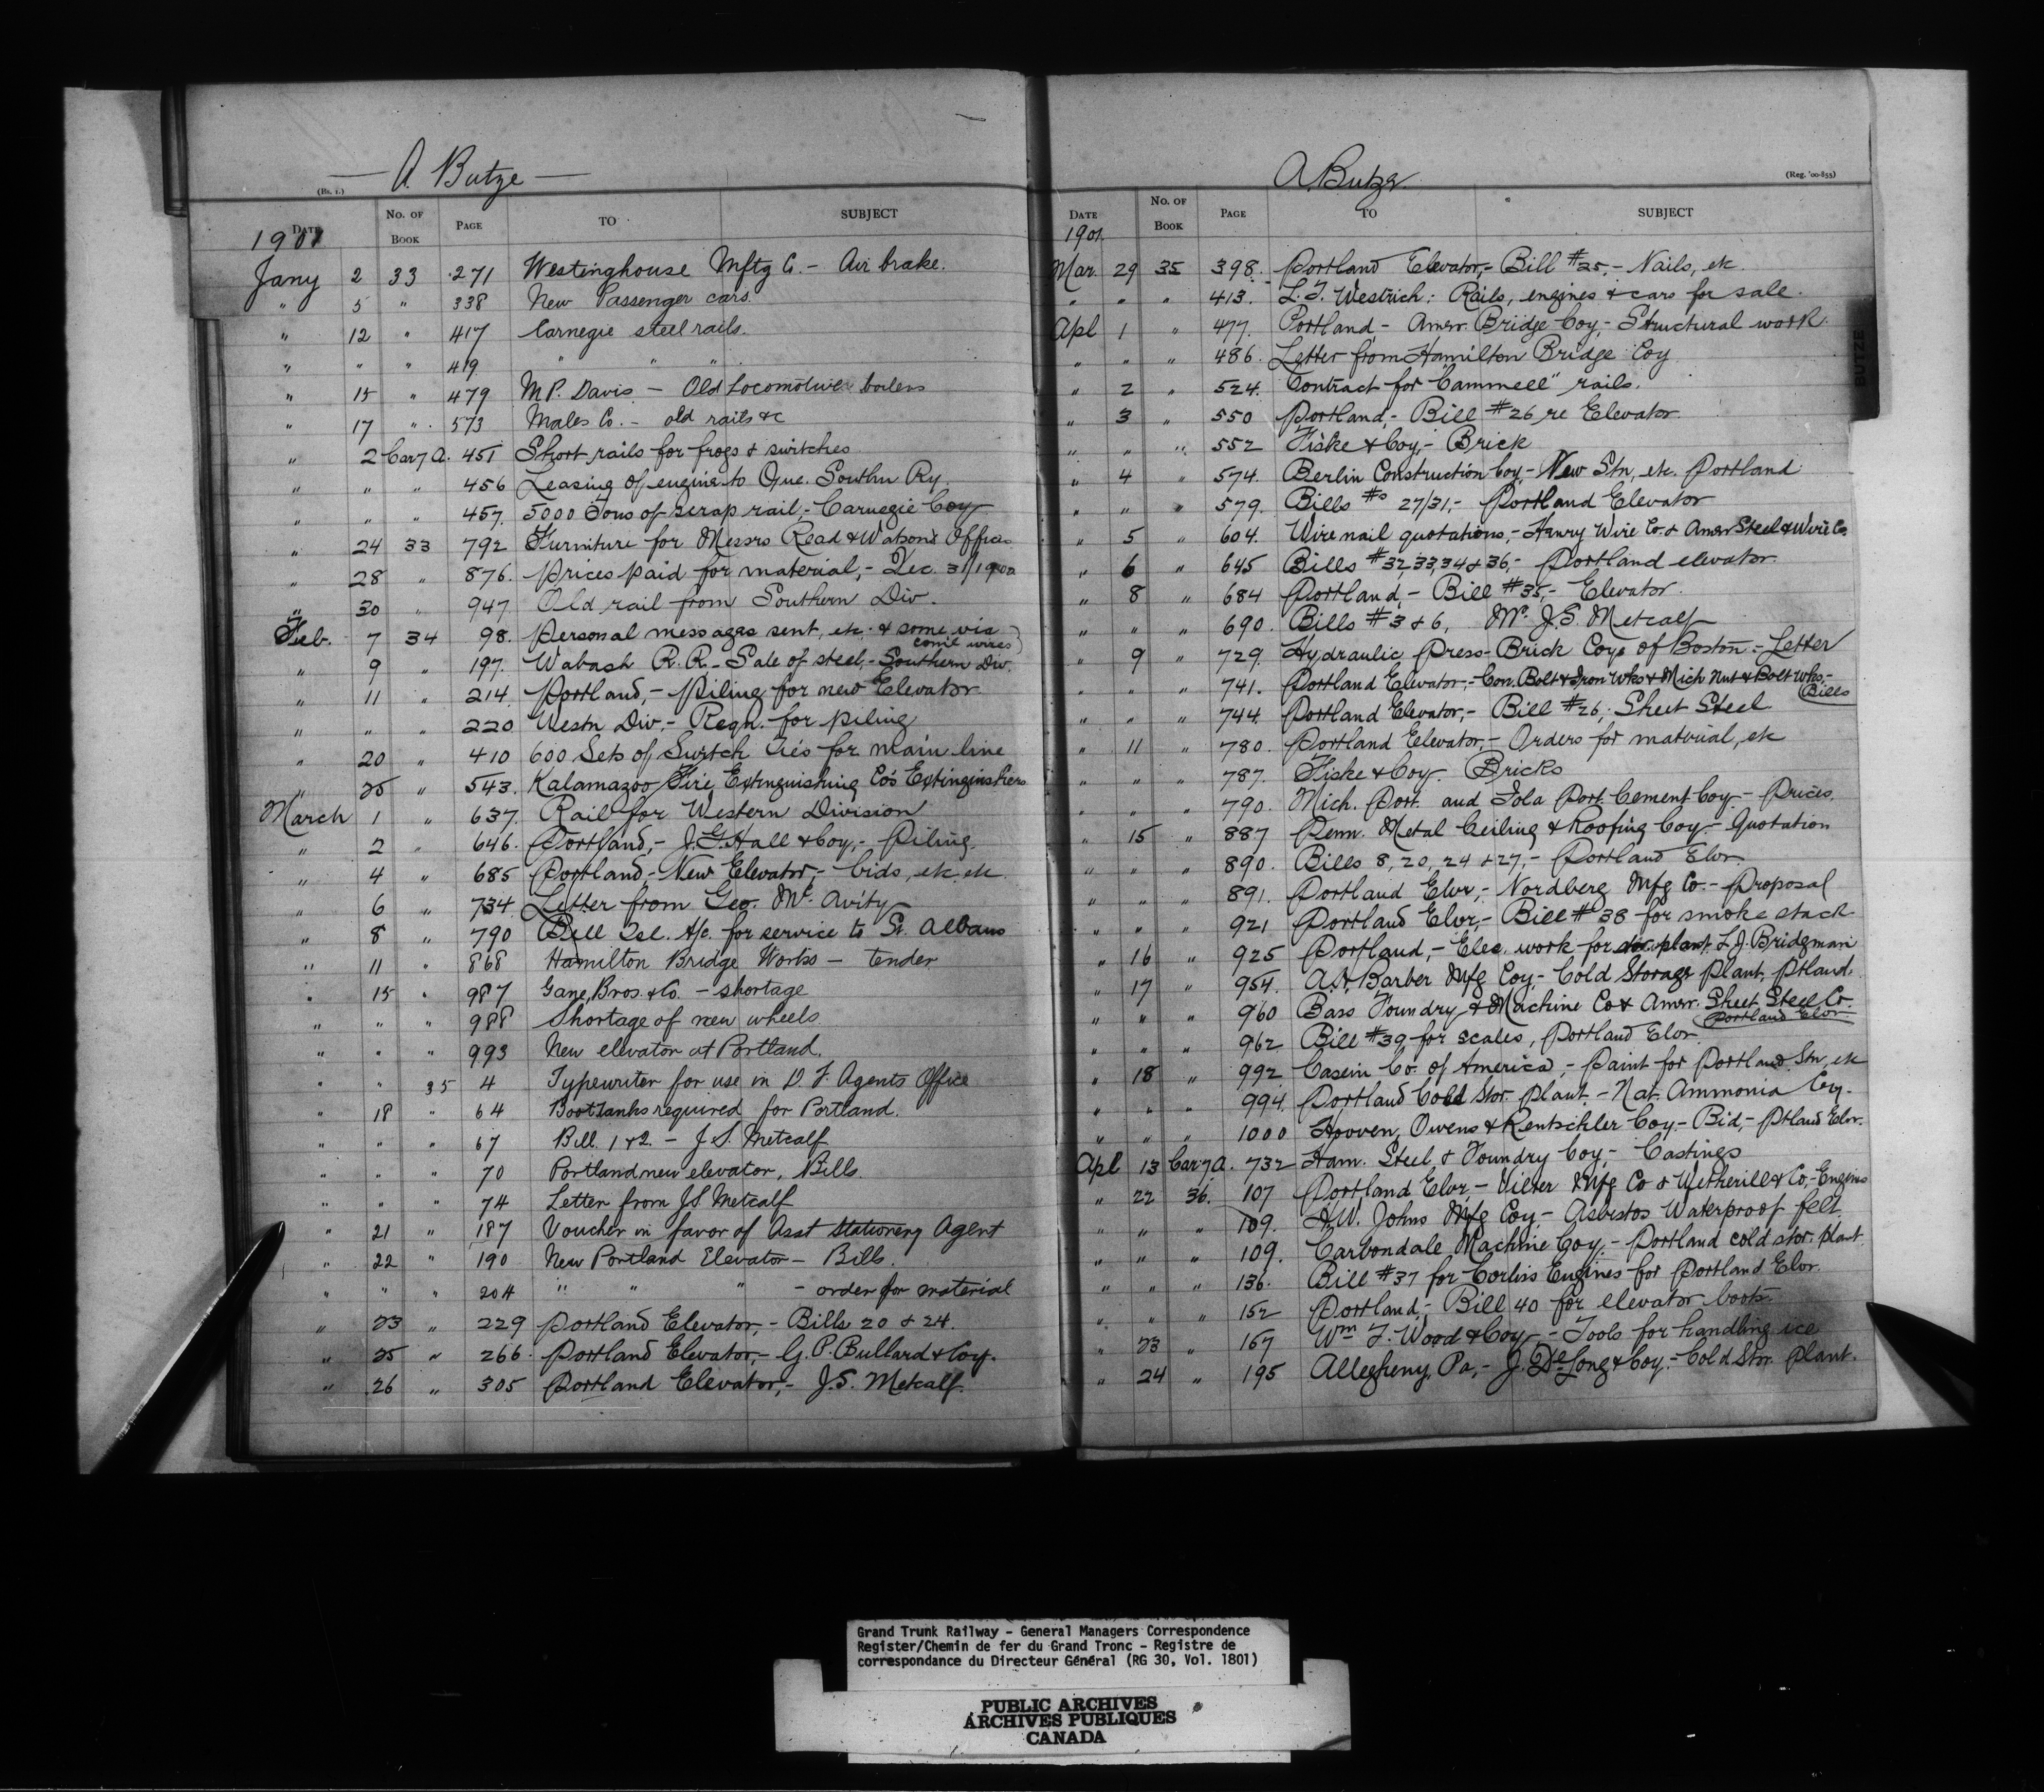 A. Butze
(Bs. 1.)
DATE No. OF BOOK PAGE TO SUBJECT
1901
Jany 2 33 271 Westinghouse Mftg Co. - Air brake.
" 5 " 338 New Passenger cars.
" 12 " 417 Carnegie steel rails.
" " " 419 " " "
" 15 " 479 M P. Davis - Old Locomotive boilers
" 17 " 573 Males Co. - old rails &c
" 2 Car 7 A. 451 Short rails for frogs & switches
" " " 456 Leasing of engine to Que. Southn Ry.
" " " 457. 5000 Tons of scrap rail,- Carnegie Coy
" 24 33 792 Furniture for Messrs Read & Watson's Offices
" 28 " 876. Prices paid for material,- Dec. 31/1900
" 30 " 947 Old rail from Southern Div.
Feb. 7 34 98. Personal messages sent, etc. & some via coml wires
" 9 " 197. Wabash R.R. - Sale of steel,- Southern Div.
" 11 " 214. Portland,- Piling for new Elevator
" " " 220 Westn Div,- Reqn. for piling
" 20 " 410 600 Sets of Switch Ties for main line
" 25 " 543. Kalamazoo Fire Extinguishing Co's Extinguishers
March 1 " 637. Rail for Western Division
" 2 " 646. Portland,- J.G. Hall & Coy,- Piling.
" 4 " 685 Portland,- New Elevator,- bids, etc, etc
" 6 " 734. Letter from Geo. McAvity
" 8 " 790 Bell Tel. A/c. for service to St. Albans
" 11 " 868 Hamilton Bridge Works - tender
" 15 " 987 Gane, Bros. & Co. - shortage
" " " 988 Shortage of new wheels
" " " 993 New elevator at Portland.
" " 35 4 Typewriter for use in D. F. Agents Office
" 18 " 64 Boot tanks required for Portland.
" " " 67 Bill 1 & 2. - J. S. Metcalf
" " " 70 Portland new elevator, Bills.
" " " 74 Letter from J S Metcalf
" 21 " 187 Voucher in favor of Asst Stationery Agent
" 22 " 190 New Portland Elevator - Bills.
" " " 204 " " " - order for material
" 23 " 229 Portland Elevator,- Bills 20 & 24.
" 25 " 266. Portland Elevator,- G. P. Bullard & Coy.
" 26 " 305 Portland Elevator,- J. S. Metcalf.
A. Butze.
(Reg. '00-855)
DATE No. OF BOOK PAGE TO SUBJECT
1901.
Mar. 29 35 398. Portland Elevator,- Bill #25,- Nails, etc.
" " " 413. L. F. Westrich: Rails, engines & cars for sale.
Apl 1 " 477. Portland,- Amer. Bridge Coy,- Structural work.
" " " 486. Letter from Hamilton Bridge Coy
" 2 " 524. Contract for "Cammell" rails.
" 3 " 550 Portland,- Bill #26 re Elevator.
" " " 552 Fiske & Coy,- Brick
" 4 " 574. Berlin Construction Coy,- New Stn, etc. Portland
" " " 579. Bills #s 27/31,- Portland Elevator
" 5 " 604. Wire nail quotations,- Henry Wire Co. & Amer Steel & Wire Co.
" 6 " 645 Bills #32, 33, 34 & 36,- Portland elevator.
" 8 " 684 Portland,- Bill #35,- Elevator.
" " " 690. Bills #3 & 6, Mr. J. S. Metcalf
" 9 " 729. Hydraulic Press-Brick Coys of Boston - Letter
" " " 741. Portland Elevator,- Con. Bolt & Iron Wks & Mich Nut & Bolt Wks,- Bills
" " " 744. Portland Elevator,- Bill #26, Sheet Steel
" 11 " 780. Portland Elevator,- Orders for material, etc
" " " 787. Fiske & Coy. Bricks
" " " 790. Mich. Port. and Iola Port. Cement Coy. - Prices.
" 15 " 887 Penn. Metal Ceiling & Roofing Coy.- Quotation
" " " 890. Bills 8, 20, 24 & 27,- Portland Elvr.
" " " 891. Portland Elvr,- Nordberg Mfg Co. - Proposal
" " " 921 Portland Elvr,- Bill #38 for smoke stack
" 16 " 925 Portland,- Elec. work for plant L. J. Bridgman
" 17 " 954. A. H. Barber Mfg Coy,- Cold Storage Plant, Ptland.
" " " 960 Bass Foundry & Machine Co & Amer. Sheet Steel Co. Portland Elvr.
" " " 962 Bill #39, for scales, Portland Elvr.
" 18 " 992 Casein Co. of America,- Paint for Portland Stn, etc
" " " 994. Portland Cold Stor. Plant. - Nat. Ammonia Coy.
" " " 1000 Hooven, Owens & Rentschler Coy - Bid,- Ptland Elvr.
Apl 13 Car 7 A. 732 Ham. Steel & Foundry Coy,- Castings
" 22 36. 107 Portland Elvr,- Vilter Mfg Co & Wetherill & Co,- Engines
" " " 109. H. W. Johns Mfg Coy.- Asbestos Waterproof felt.
" " " 109. Carbondale Machine Coy,- Portland cold stor. plant
" " " 136. Bill #37 for Corliss Engines for Portland Elvr.
" " " 152 Portland,- Bill 40 for elevator boots.
" 23 " 167 Wm T. Wood & Coy - Tools for handling ice
" 24 " 195 Allegheny, Pa,- J. DeLong & Coy.- Cold Stor. Plant.
BUTZE
Grand Trunk Railway - General Managers Correspondence
Register/Chemin de fer du Grand Tronc - Registre de
correspondance du Directeur Général (RG 30, Vol. 1801)
PUBLIC ARCHIVES
ARCHIVES PUBLIQUES
CANADA